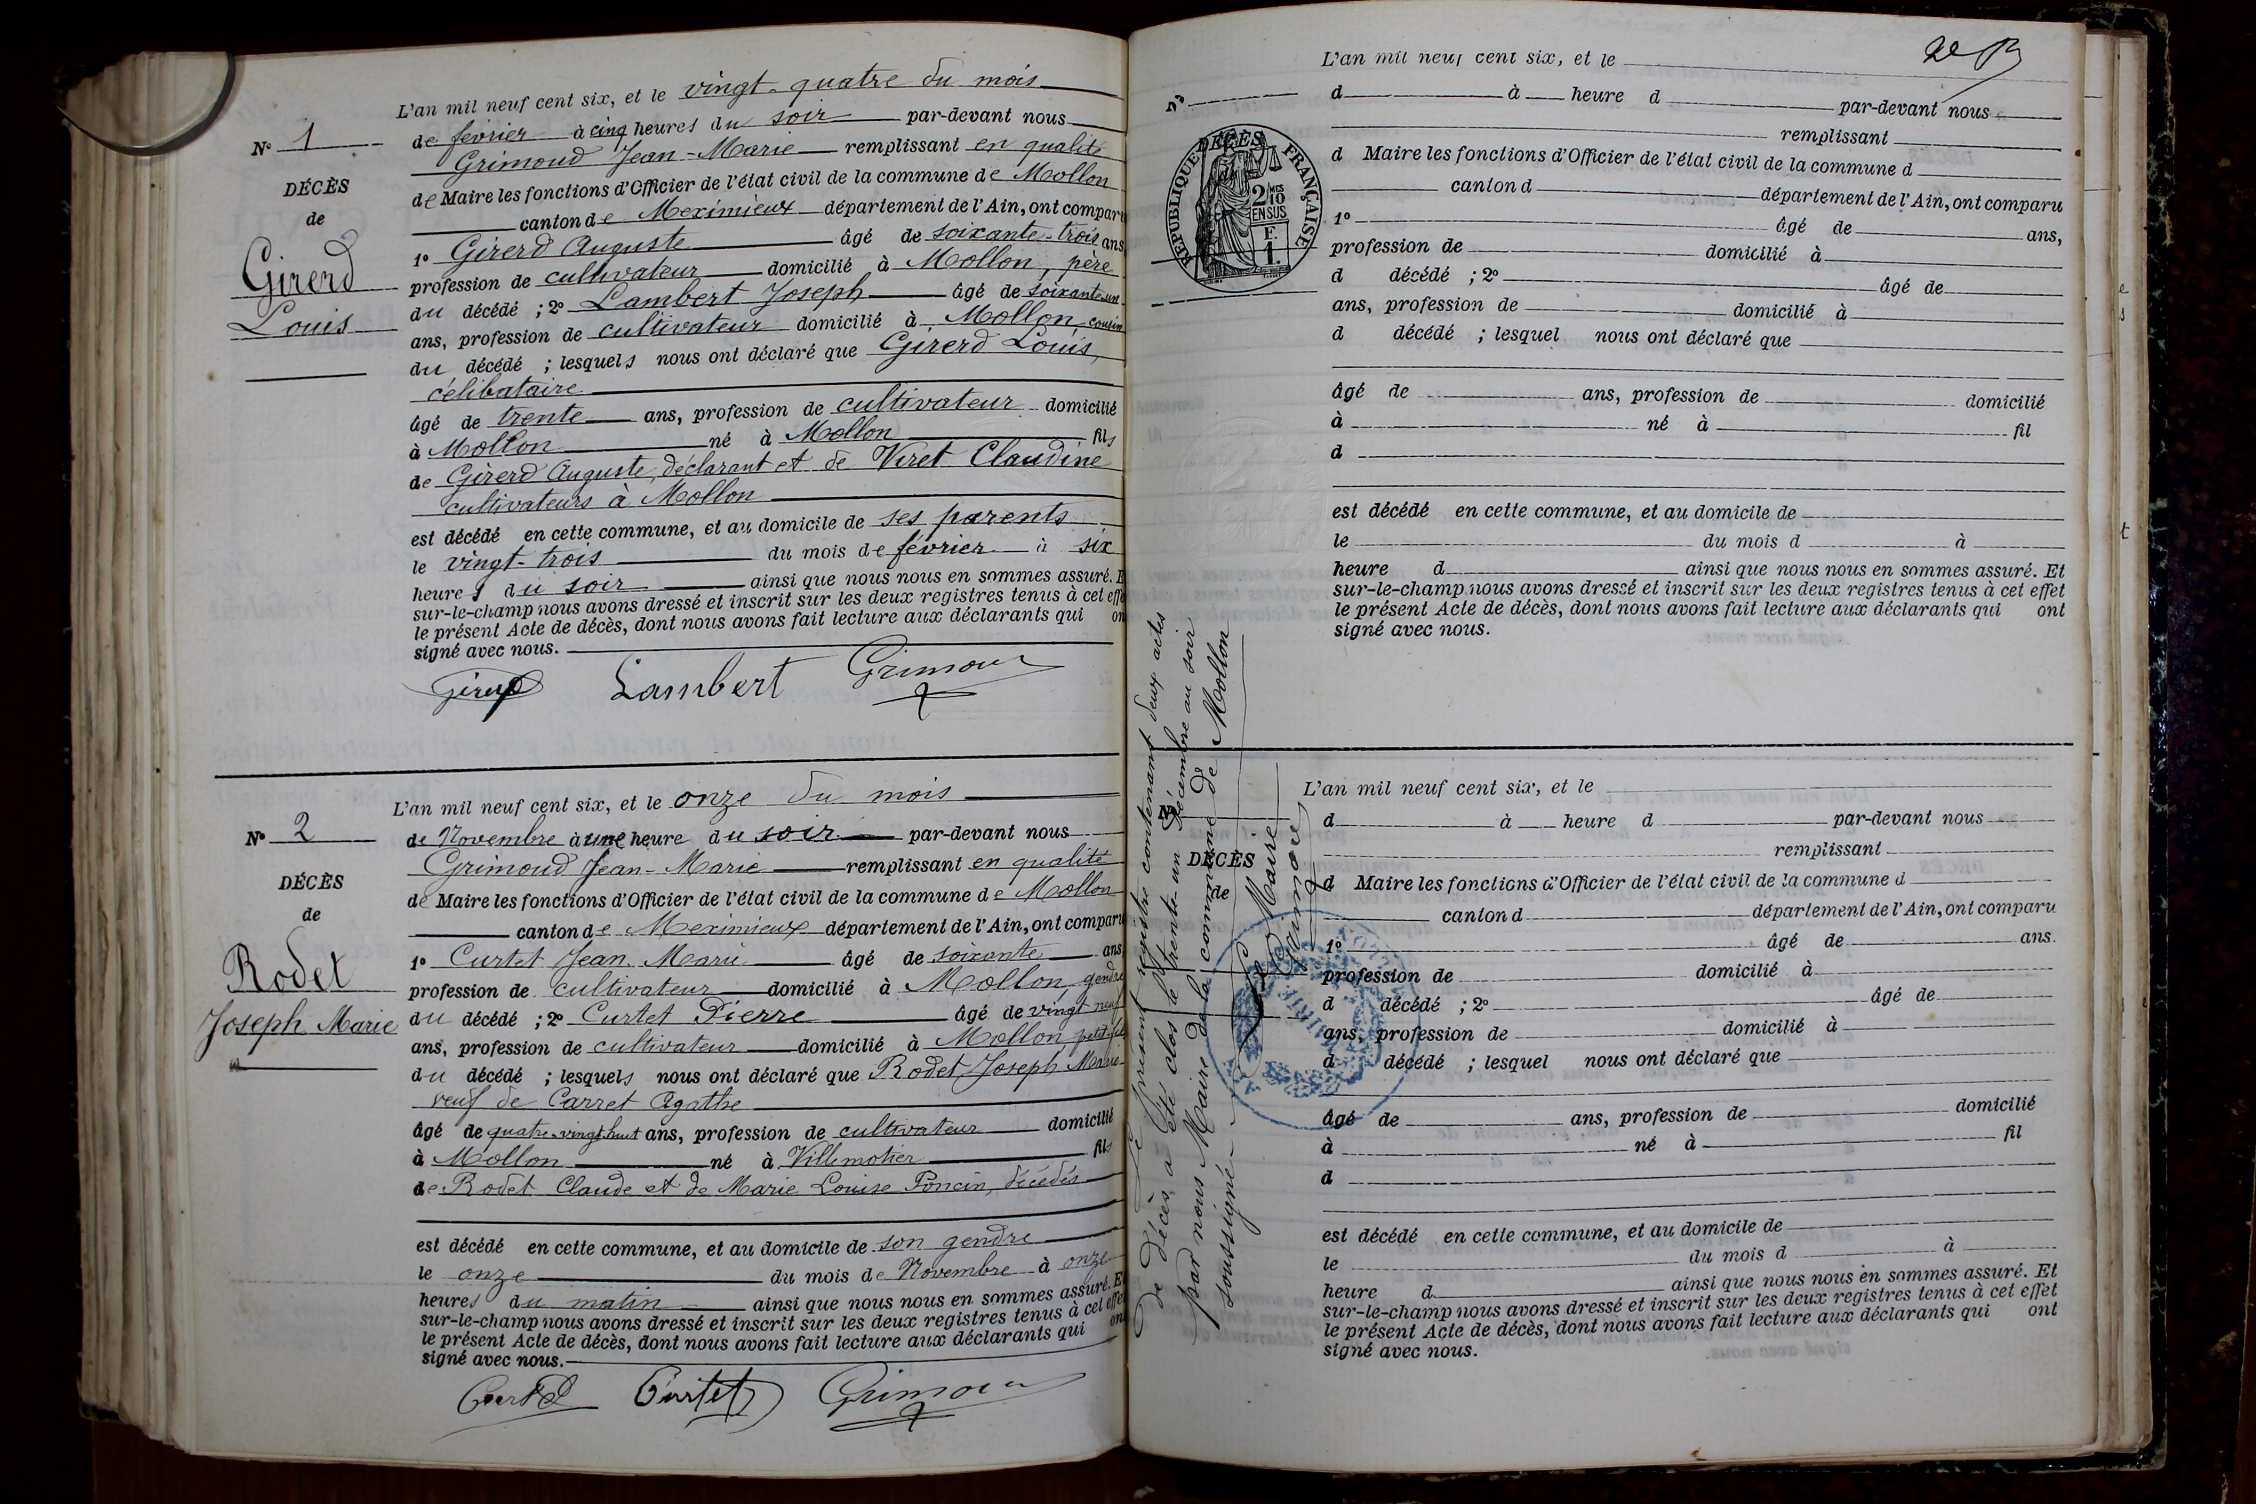 N° 1
DÉCÈS
de
Girerd
Louis
L'an mil neuf cent six, et le vingt-quatre du mois
de février à cinq heures du soir par-devant nous
Grimoud Jean-Marie remplissant en qualité
de Maire les fonctions d'Officier de l'état civil de la commune de Mollon
canton de Meximieux département de l'Ain, ont comparu
1° Girerd Auguste âgé de soixante-trois ans
profession de cultivateur domicilié à Mollon, père
du décédé ; 2° Lambert Joseph âgé de soixante-un
ans, profession de cultivateur domicilié à Mollon, cousin
du décédé ; lesquels nous ont déclaré que Girerd Louis,
célibataire
âgé de trente ans, profession de cultivateur domicilié
à Mollon né à Mollon fils
de Girerd Auguste, déclarant et de Viret Claudine
cultivateurs à Mollon
est décédé en cette commune, et au domicile de ses parents
le vingt-trois du mois de février à six
heures du soir ainsi que nous nous en sommes assuré. Et
sur-le-champ nous avons dressé et inscrit sur les deux registres tenus à cet effet
le présent Acte de décès, dont nous avons fait lecture aux déclarants qui ont
signé avec nous.
Girerd Lambert Grimoud
N° 2
DÉCÈS
de
Rodet
Joseph Marie
L'an mil neuf cent six, et le onze du mois
de Novembre à une heure du soir par-devant nous
Grimoud Jean-Marie remplissant en qualité
de Maire les fonctions d'Officier de l'état civil de la commune de Mollon
canton de Meximieux département de l'Ain, ont comparu
1° Curtet Jean Marie âgé de soixante ans
profession de cultivateur domicilié à Mollon, gendre
du décédé ; 2° Curtet Pierre âgé de vingt neuf
ans, profession de cultivateur domicilié à Mollon, petit-fils
du décédé ; lesquels nous ont déclaré que Rodet Joseph Marie
veuf de Carret Agathe
âgé de quatre-vingt-huit ans, profession de cultivateur domicilié
à Mollon né à Villemotier fils
de Rodet Claude et de Marie Louise Poncin, décédés
est décédé en cette commune, et au domicile de son gendre
le onze du mois de Novembre à onze
heures du matin ainsi que nous nous en sommes assuré. Et
sur-le-champ nous avons dressé et inscrit sur les deux registres tenus à cet effet
le présent Acte de décès, dont nous avons fait lecture aux déclarants qui ont
signé avec nous.
Curtet Curtet Grimoud
Le présent registre contenant deux actes
de décès a été clos le trente-un Décembre au soir
par nous Maire de la commune de Mollon
soussigné
Le Maire
Grimoud
MAIRIE
N°
DÉCÈS
RÉPUBLIQUE FRANÇAISE
2/10 MES
EN SUS
F
1.
L'an mil neuf cent six, et le
d à heure d par-devant nous
remplissant
d Maire les fonctions d'Officier de l'état civil de la commune d
canton d département de l'Ain, ont comparu
1° âgé de ans,
profession de domicilié à
d décédé ; 2° âgé de
ans, profession de domicilié à
d décédé ; lesquel nous ont déclaré que
âgé de ans, profession de domicilié
à né à fil
d
est décédé en cette commune, et au domicile de
le du mois d à
heure d ainsi que nous nous en sommes assuré. Et
sur-le-champ nous avons dressé et inscrit sur les deux registres tenus à cet effet
le présent Acte de décès, dont nous avons fait lecture aux déclarants qui ont
signé avec nous.
N°
DÉCÈS
de
L'an mil neuf cent six, et le
d à heure d par-devant nous
remplissant
d Maire les fonctions d'Officier de l'état civil de la commune d
canton d département de l'Ain, ont comparu
1° âgé de ans.
profession de domicilié à
d décédé ; 2° âgé de
ans, profession de domicilié à
d décédé ; lesquel nous ont déclaré que
âgé de ans, profession de domicilié
à né à fil
d
est décédé en cette commune, et au domicile de
le du mois d à
heure d ainsi que nous nous en sommes assuré. Et
sur-le-champ nous avons dressé et inscrit sur les deux registres tenus à cet effet
le présent Acte de décès, dont nous avons fait lecture aux déclarants qui ont
signé avec nous.